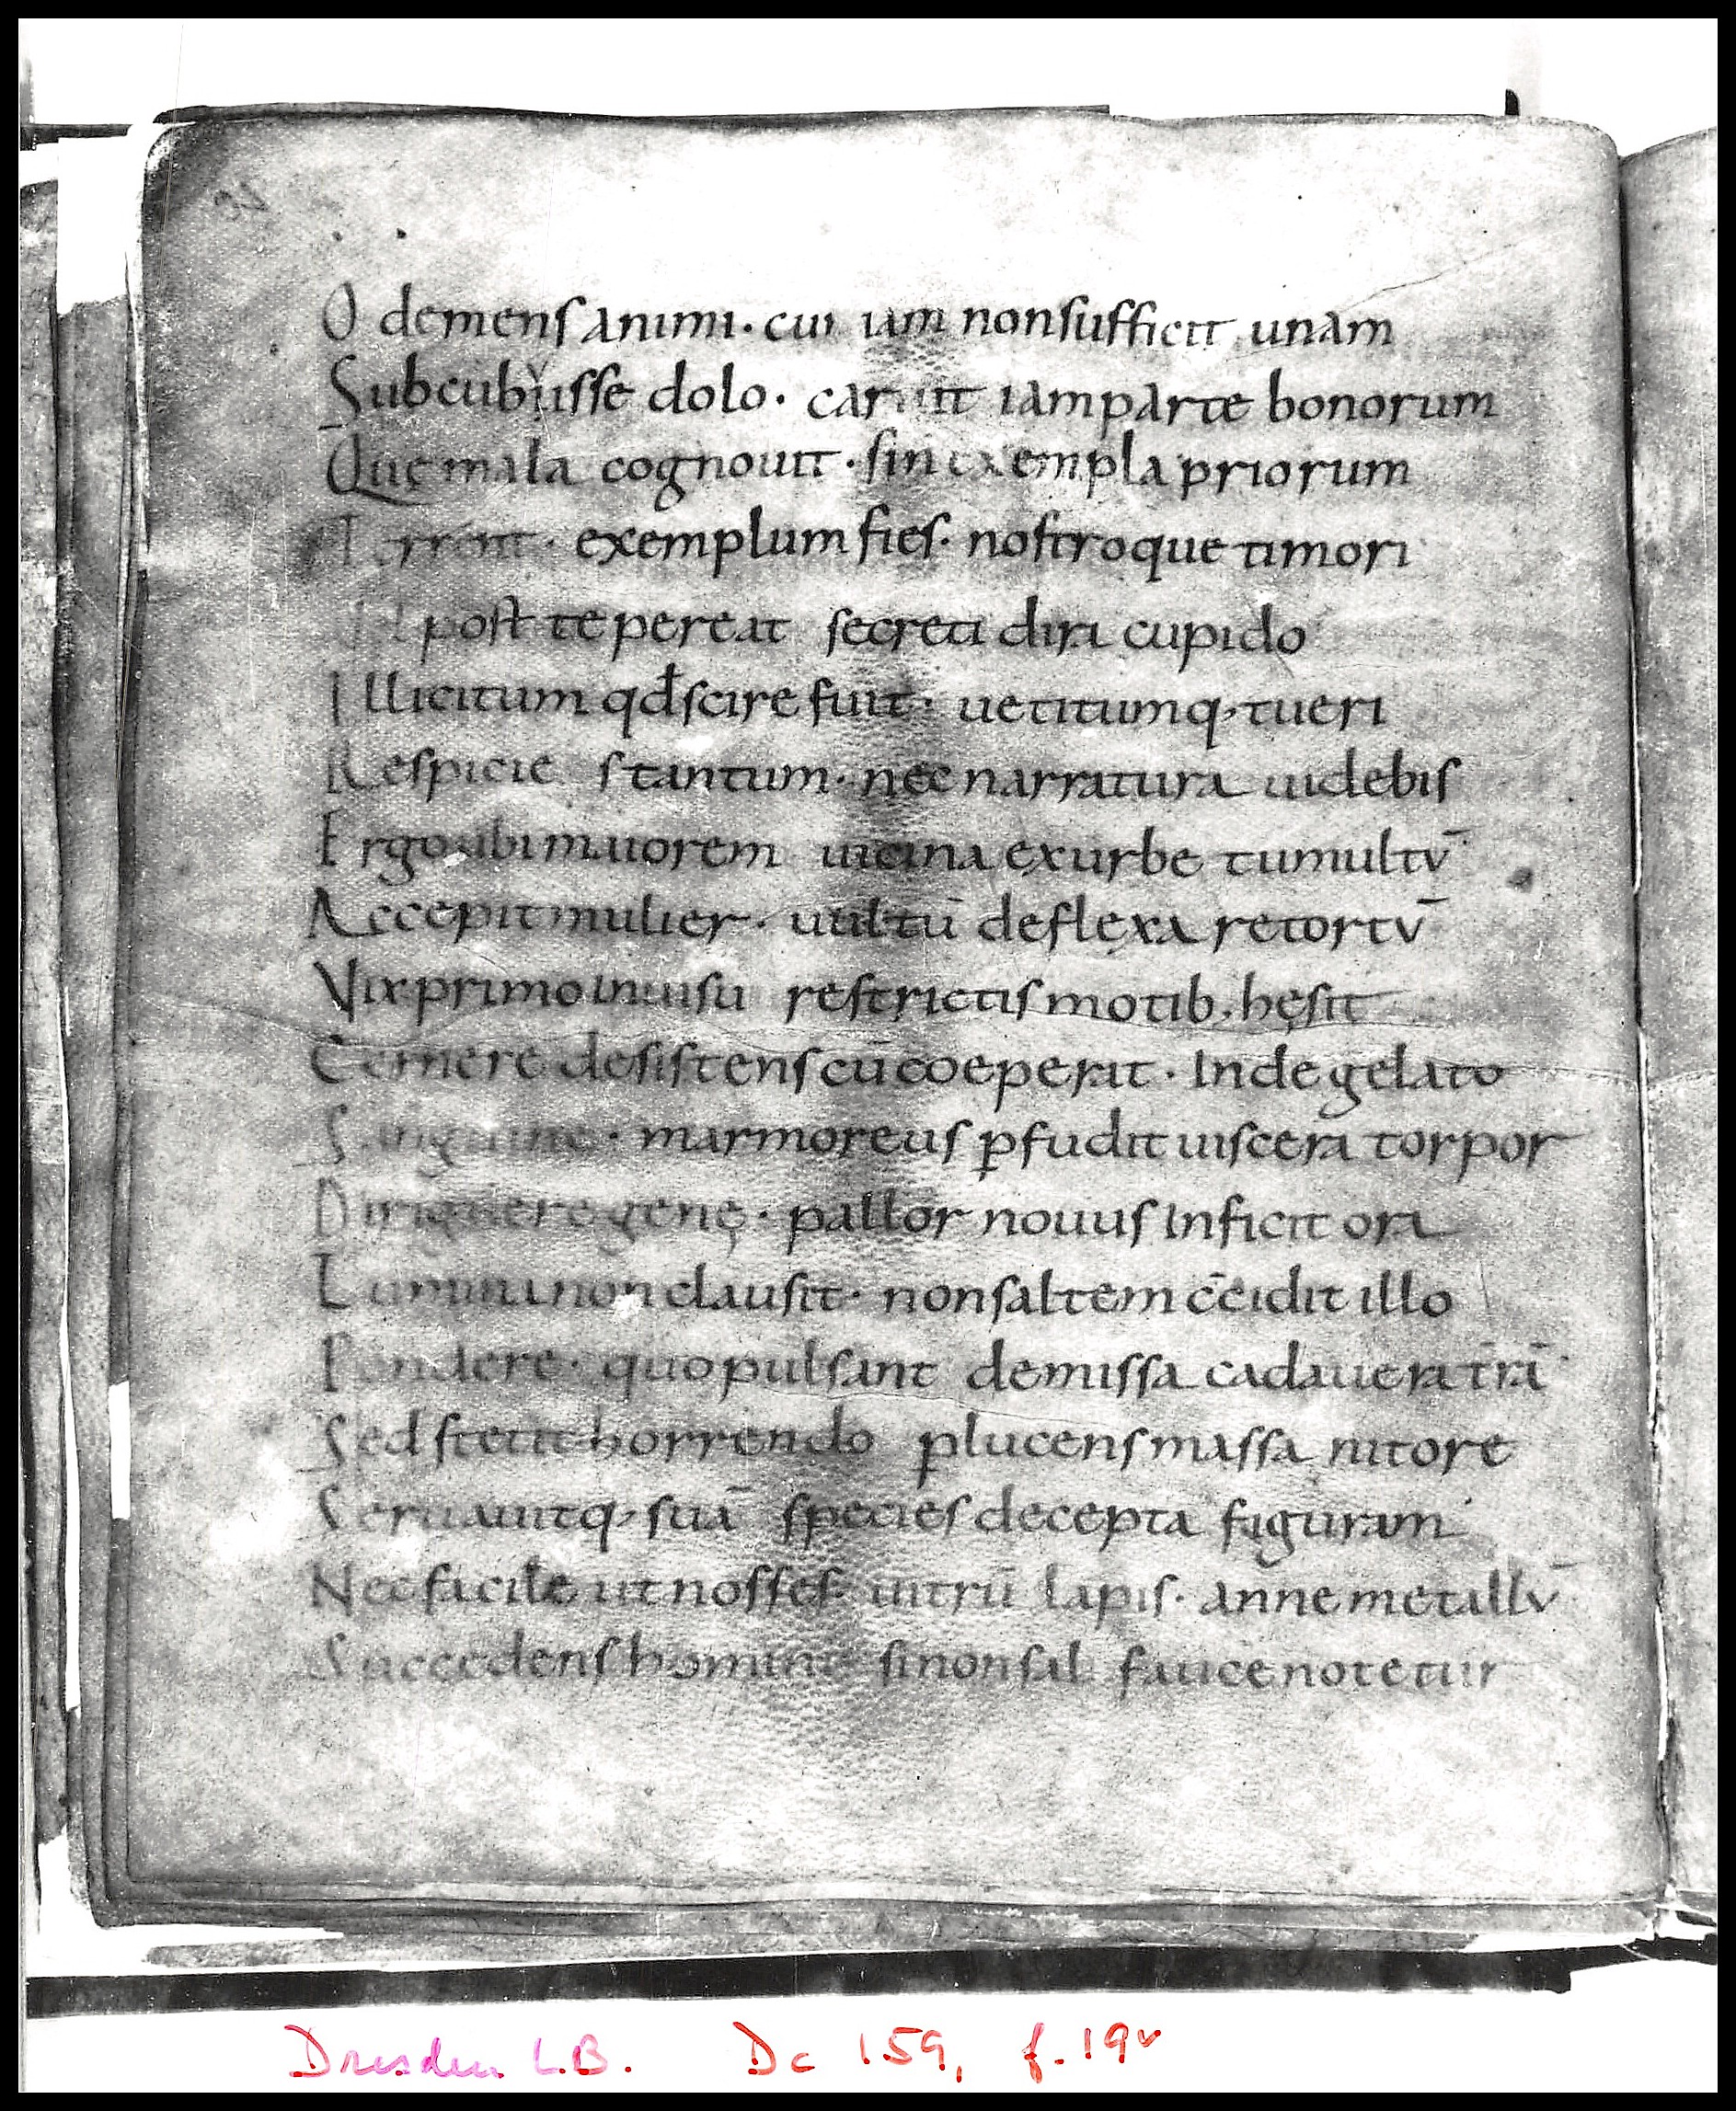 O demens animi · cui iam non sufficit unam
Subcubuisse dolo · caruit iam parte bonorum
Que mala cognouit · sin exempla priorum
Terrent · exemplum fies · nostroque timori
post te pereat secreti dira cupido
Illicitum qđ scire fuit · uetitumq; tueri
Respicie stantum · nec narratura uidebis
Ergo ubi maiorem uicina ex urbe tumultū
Accepit mulier · uultū deflexa retortū
Vix primo inuisu restrictis motib; hęsit
Cernere desistens cū coeperat · Inde gelato
Sanguine · marmoreus ꝑfudit uiscera torpor
Diriguere genę · pallor nouus inficit ora
Lumina non clausit · non saltem c̄cidit illo
Pondere · quo pulsant demissa cadauera tr̄ā
Sed stetit horrendo ꝑlucens massa nitore
Seruauitq; suā species decepta figuram
Nec facile ut nosses · uitrū lapis · anne metallū
Succedens homini si non sal fauce notetur
Dresden L.B. Dc 159, f. 19v